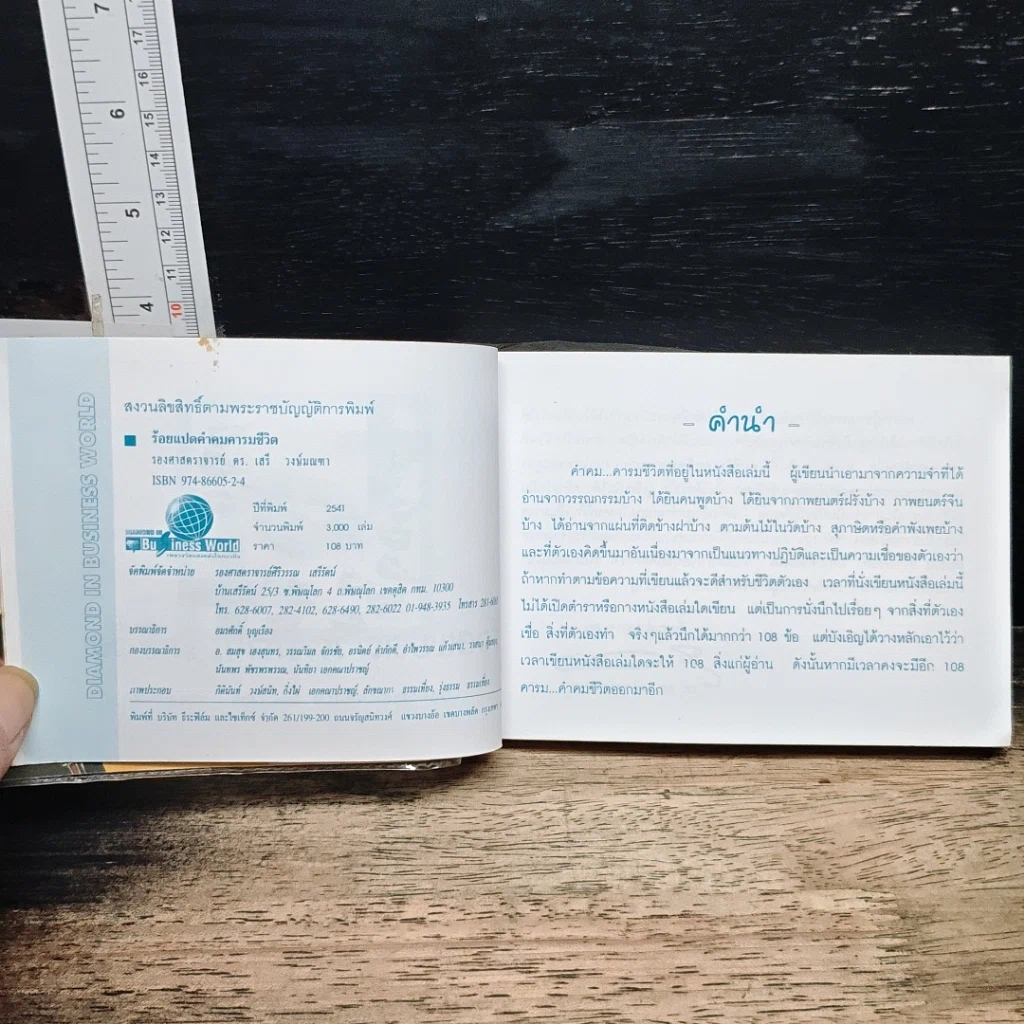 7
6
5
4
17
16
15
14
13
12
11
10
DIAMOND IN BUSINESS WORLD
สงวนลิขสิทธิ์ตามพระราชบัญญัติการพิมพ์
ร้อยแปดคำคมคารมชีวิต
รองศาสตราจารย์ ดร. เสรี วงษ์มณฑา
ISBN 974-86605-2-4
DIAMOND IN
Business World
ปีที่พิมพ์ 2541
จำนวนพิมพ์ 3,000 เล่ม
ราคา 108 บาท
จัดพิมพ์จัดจำหน่าย รองศาสตราจารย์ศิริวรรณ เสรีรัตน์
บ้านเสรีรัตน์ 25/3 ซ.พิษณุโลก 4 ถ.พิษณุโลก เขตดุสิต กทม. 10300
โทร. 628-6007, 282-4102, 628-6490, 282-6022 01-948-3935 โทรสาร
บรรณาธิการ อมรศักดิ์ บุญเรือง
กองบรรณาธิการ อ. สมสุข เฮงสุนทร, วรรณวิมล จักรชัย, อรนิตย์ คำภักดี, อำไพวรรณ แก้วเสนา, วาสนา
นันทพร พัชรพรพรรณ, นันทิยา เอกคณาปราชญ์
ภาพประกอบ กิตินันท์ วงษ์สนิท, กิ่งไผ่ เอกคณาปราชญ์, ลักขณากา ธรรมเที่ยง, รุ่งธรรม ธรรมเที่ยง
พิมพ์ที่ บริษัท ธีระฟิล์ม และไซเท็กซ์ จำกัด 261/199-200 ถนนจรัญสนิทวงศ์ แขวงบางอ้อ เขตบางพลัด
- คำนำ -
คำคม...คารมชีวิตที่อยู่ในหนังสือเล่มนี้ ผู้เขียนนำเอามาจากความจำที่ได้
อ่านจากวรรณกรรมบ้าง ได้ยินคนพูดบ้าง ได้ยินจากภาพยนตร์ฝรั่งบ้าง ภาพยนตร์จีน
บ้าง ได้อ่านจากแผ่นที่ติดข้างฝาบ้าง ตามต้นไม้ในวัดบ้าง สุภาษิตหรือคำพังเพยบ้าง
และที่ตัวเองคิดขึ้นมาอันเนื่องมาจากเป็นแนวทางปฏิบัติและเป็นความเชื่อของตัวเองว่า
ถ้าหากทำตามข้อความที่เขียนแล้วจะดีสำหรับชีวิตตัวเอง เวลาที่นั่งเขียนหนังสือเล่มนี้
ไม่ได้เปิดตำราหรือกางหนังสือเล่มใดเขียน แต่เป็นการนั่งนึกไปเรื่อยๆ จากสิ่งที่ตัวเอง
เชื่อ สิ่งที่ตัวเองทำ จริงๆแล้วนึกได้มากกว่า 108 ข้อ แต่บังเอิญได้วางหลักเอาไว้ว่า
เวลาเขียนหนังสือเล่มใดจะให้ 108 สิ่งแก่ผู้อ่าน ดังนั้นหากมีเวลาคงจะมีอีก 108
คารม...คำคมชีวิตออกมาอีก